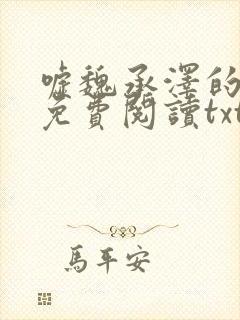 噓魏承澤的
免費閱讀txt
馬平安